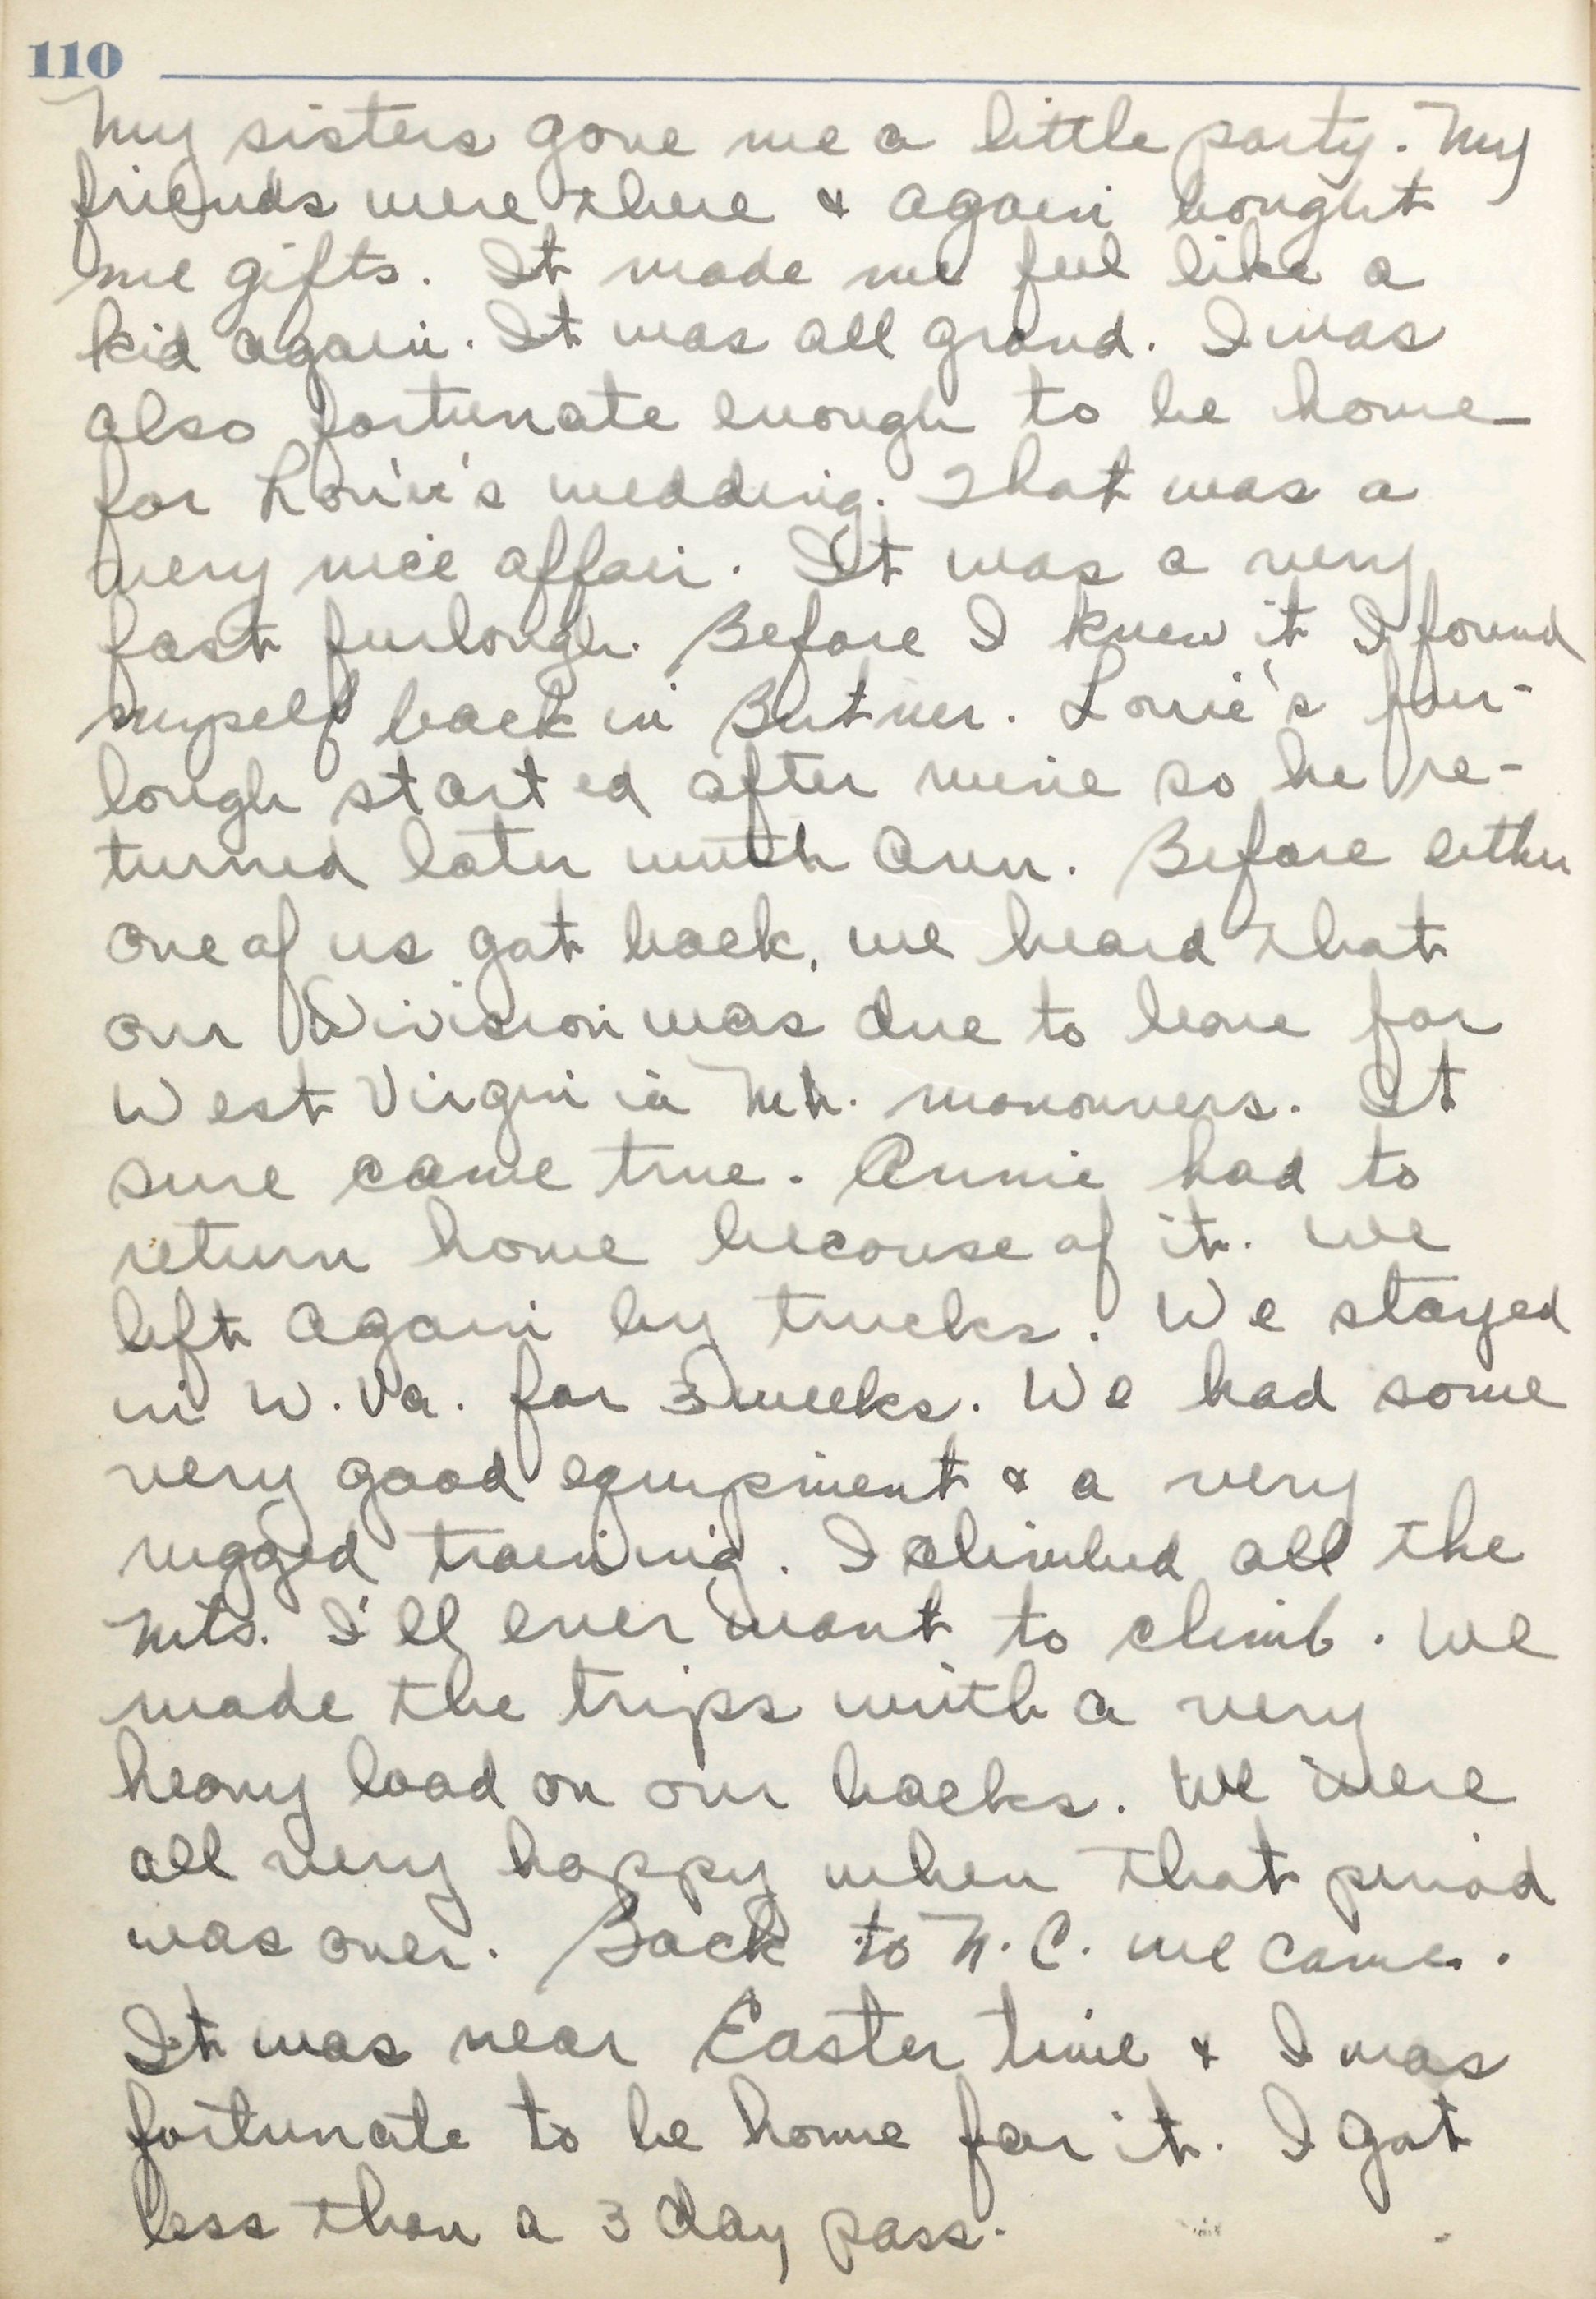 110
My sisters gave me a little party. My
friends were there & again bought
me gifts. It made me feel like a
kid again. It was all grand. I was
also fortunate enough to be home
for Lorie's wedding. That was a
very nice affair. It was a very
fast furlough. Before I knew it I found
myself back in Butner. Lorie's fur-
lough started after mine so he re-
turned later with Ann. Before either
one of us got back, we heard that
our Division was due to leave for
West Virginia Mt. manouvers. It
sure came true. Annie had to
return home because of it. We
left again by trucks. We stayed
in W. Va. for 3 weeks. We had some
very good equipment & a very
rugged training. I climbed all the
Mts. I'll ever want to climb. We
made the trips with a very
heavy load on our backs. We were
all very happy when that period
was over. Back to N.C. we came.
It was near Easter time & I was
fortunate to be home for it. I got
less than a 3 day pass.